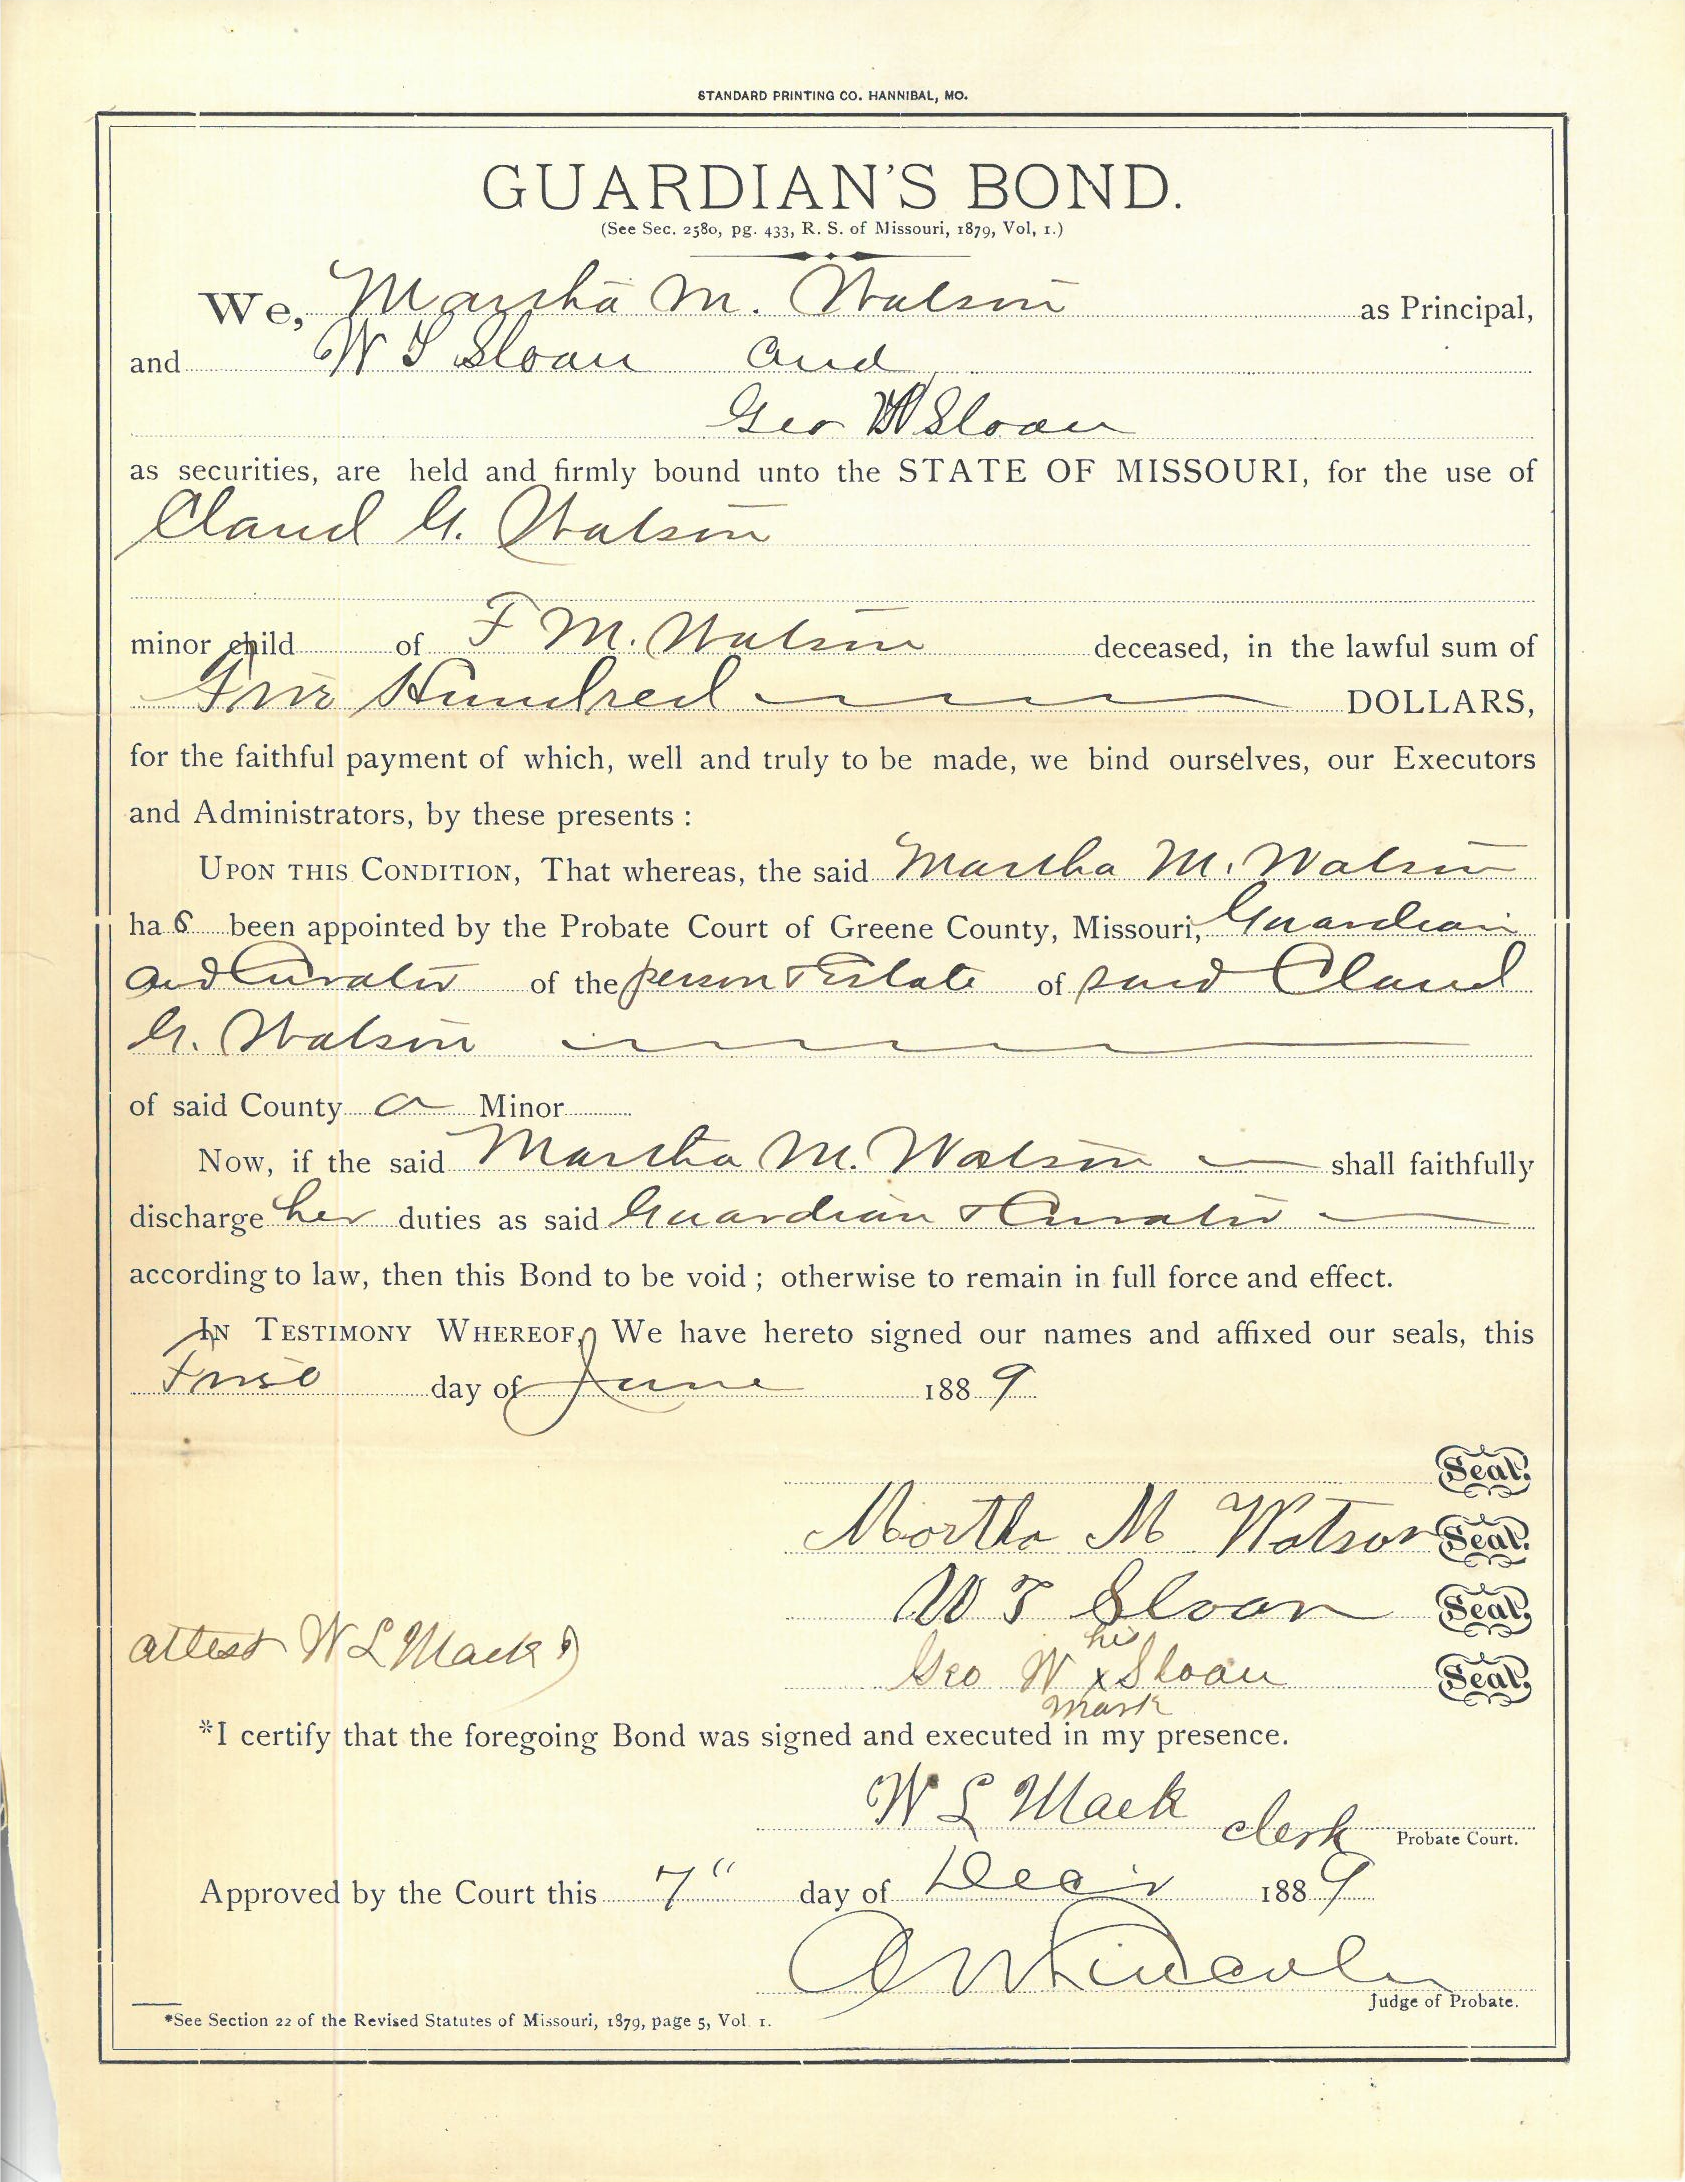 STANDARD PRINTING CO. HANNIBAL, MO.
GUARDIAN'S BOND.
(See Sec. 2580, pg. 433, R. S. of Missouri, 1879, Vol, 1.)
We, Martha M. Watson as Principal,
and W T Sloan and
Geo W Sloan
as securities, are held and firmly bound unto the STATE OF MISSOURI, for the use of
Claud G. Watson
minor child of F M. Watson deceased, in the lawful sum of
Five Hundred DOLLARS,
for the faithful payment of which, well and truly to be made, we bind ourselves, our Executors
and Administrators, by these presents :
UPON THIS CONDITION, That whereas, the said Martha M. Watson
ha s been appointed by the Probate Court of Greene County, Missouri, Guardian
and Curator of the person & Estate of said Claud
G. Watson
of said County a Minor
Now, if the said Martha M. Watson shall faithfully
discharge her duties as said Guardian & Curator
according to law, then this Bond to be void ; otherwise to remain in full force and effect.
IN TESTIMONY WHEREOF, We have hereto signed our names and affixed our seals, this
day of June 1889
Seal.
Martha M Watson Seal.
W T Sloan Seal.
his
attest W L Mack Geo W x Sloan Seal.
mark
*I certify that the foregoing Bond was signed and executed in my presence.
W L Mack clerk Probate Court.
Approved by the Court this 7" day of Decr 1889
Judge of Probate.
*See Section 22 of the Revised Statutes of Missouri, 1879, page 5, Vol 1.